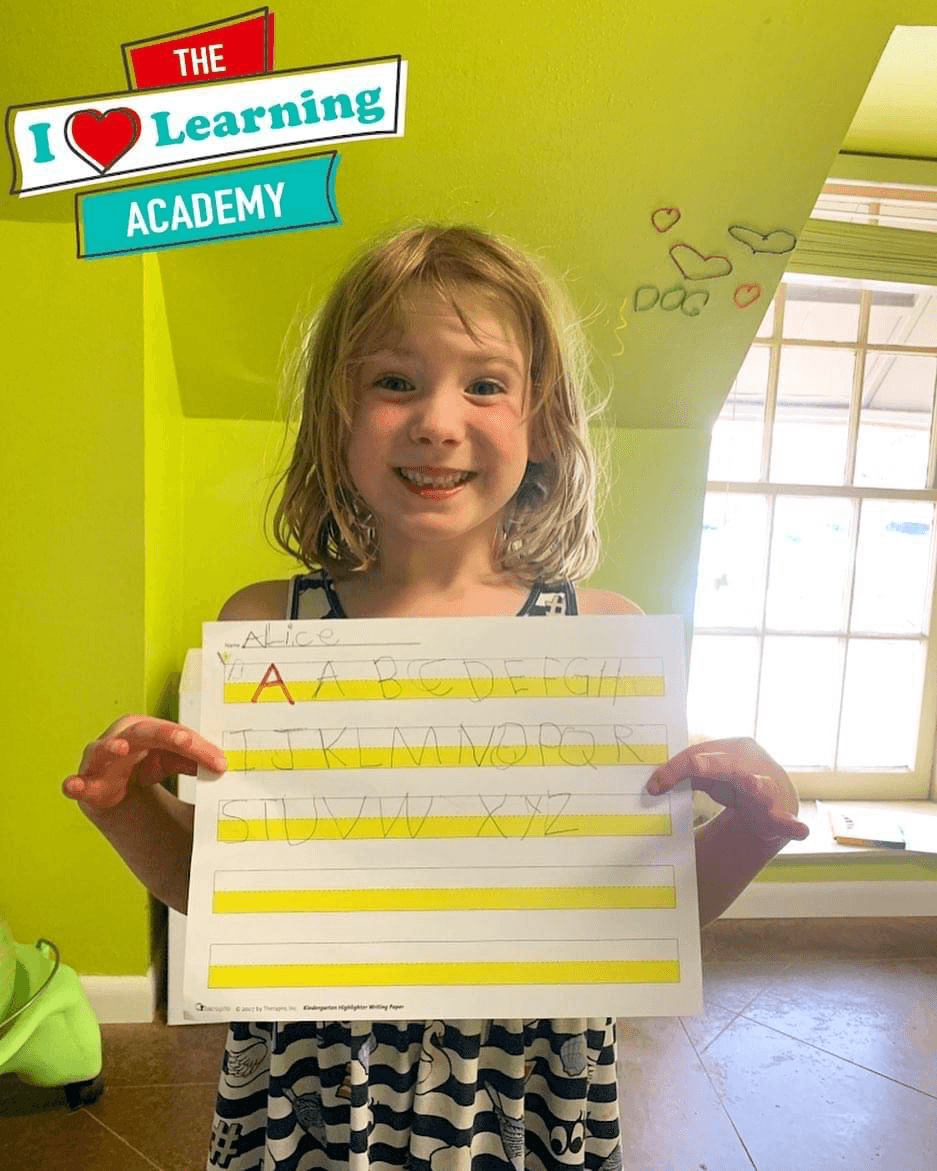 THE
I Learning
ACADEMY
DOG
Name Alice
A A B C D E F G H
I J K L M N O P Q R
S T U V W X Y Z
© 2017 by Therapro, Inc. Kindergarten Highlighter Writing Paper